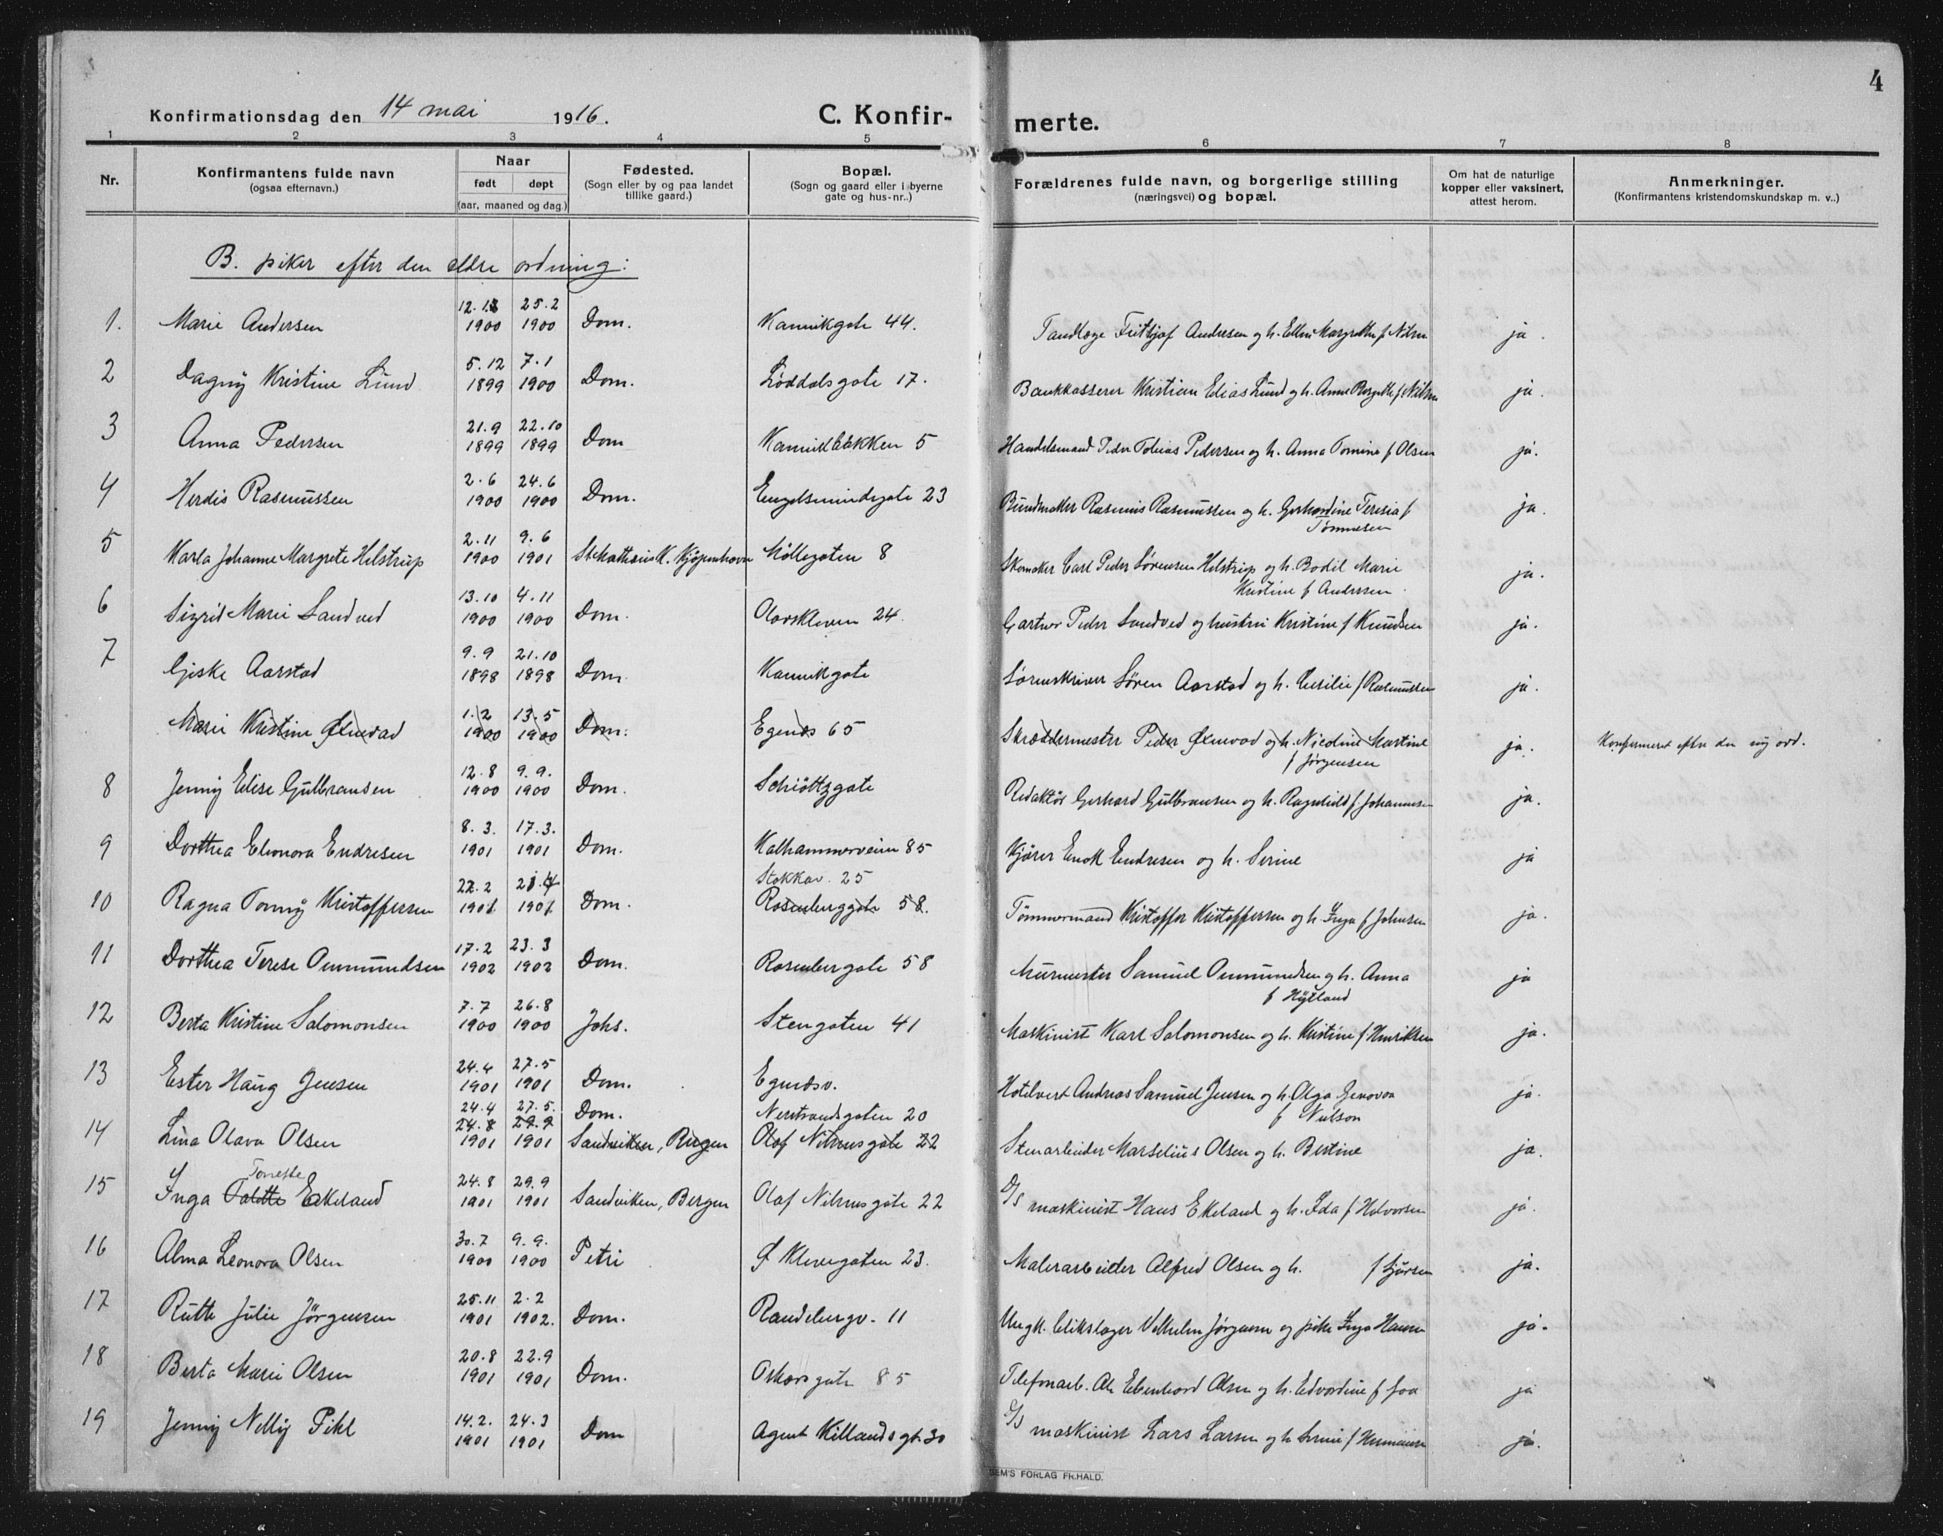 4
Konfirmationsdag den 14 mai 1916. C. Konfir- merte.
1 2 3 4 5 6 7 8
Nr. Konfirmantens fulde navn (ogsaa efternavn.) Naar født døpt (aar, maaned og dag.) Fødested. (Sogn eller by og paa landet tillike gaard.) Bopæl. (Sogn og gaard eller i byerne gate og hus-nr.) Forældrenes fulde navn, og borgerlige stilling (næringsvei) og bopæl. Om hat de naturlige kopper eller vaksinert, attest herom. Anmerkninger. (Konfirmantens kristendomskundskap m. v..)
B. piker efter den eldre ordning:
1. Marie Andersen 12.1 1900 25.2 1900 Dom. Kannikgate 44. Tandlæge Frithjof Andersen og h. Ellen Margrethe f Nilsen ja.
2 Dagny Kristine Lund 5.12 1899 7.1 1900 Dom. Løddelsgate 17. Bankkasserer Kristian Elias Lund og h. Anne f Nilsen ja.
3 Anna Pedersen 21.9 1899 22.10 1899 Dom Kannikbakken 5 Handelsmand Peder Tobias Pedersen og h. Anna Tomine f Olsen ja.
4 Herdis Rasmussen 2.6 1900 24.6 1900 Dom. Engelsmindegate 23 Bundtmaker Rasmus Rasmussen og h. Gerhardine Teresia f Tønnesen ja.
5 Karla Johanne Margrete Helstrup 2.11 1900 9.6 1901 St. K. Kjøpenhavn Møllegaten 8 Skomaker Carl Peder Sørensen Helstrup og h. Bodil Marie Kristine f Andersen. ja.
6 Sigrid Marie Sandved 13.10 1900 4.11 1900 Dom. Aarskleven 24. Gartner Peder Sandved og hustru Kristine f Knudsen ja.
7 Giske Aarstad 9.9 1898 21.10 1898 Dom. Kannikgate Sorenskriver Søren Aarstad og h. Cecilie f Rasmussen ja.
Marie Kristine Øxnevad 1.2 1900 13.5 1900 Dom. Egenæs 65 Skræddermester Peder Øxnevad og h. Nicoline Martine f Jørgensen ja. Konfirmeret efter den ny ord.
8 Jenny Elise Gulbransen 12.8 1900 9.9. 1900 Dom. Schiøttzgate Redaktør Gerhard Gulbransen og h. Ragnhild f Johannesen ja.
9 Dorthea Eleonora Endresen 8.3. 1901 17.3. 1901 Dom. Kalhammerveien 85 Kjører Enok Endresen og h. Serine ja
10 Ragna Tonny Kristoffersen 22.2 1901 21.4 1901 Dom. Stokkav. 25 Rosenberggate 58. Tømmermand Kristoffer Kristoffersen og h. Inga f Johnsen ja.
11 Dorthea Terese Ommundsen 17.2 1902 23.3 1902 Dom. Rosenbergate 58 Murmester Samuel Ommundsen og h. Anna f Hylland ja
12 Berta Kristine Salomonsen 7.7 1900 26.8 1900 Johs. Stengaten 41 Maskinist Karl Salomonsen og h. Kristine f. Henriksen ja.
13 Ester Haug Jensen 24.4 1901 27.5 1901 Dom. Egenæsv. Hotelvert Andreas Samuel Jensen og h. Olga Genovva f Nielson ja.
14 Lina Olava Olsen 24.4 24.8 1901 27.5. 29.9 1901 Dom. Sandviken, Bergen Nerstrandsgaten 20 Olaf Nilsensgate 22 Stenarbeider Marselius Olsen og h. Bertine ja.
15 Inga Talette Tonette Eekeland 24.8 1901 29.9 1901 Sandviken, Bergen Olaf Nilsensgate 22 D/S maskinist Hans Ekeland og h. Ida f Halvorsen ja.
16 Alma Leonora Olsen 30.7 1900 9.9. 1900 Petri Ø Klevegaten 23. Malerarbeider Alfred Olsen og h. f ja.
17 Ruth Julie Jørgensen 25.11 1901 2.2 1902. Dom. Randebergv. 11 Ungk. blikslager Vilhelm Jørgensen og pike Inga Hansen ja.
18 Berta Marie Olsen 20.8 1901 22.9 1901 Dom. Oskarsgate 85 Telefonarb. Edenhard Olsen og h. Edvardine f Joa ja
19 Jenny Nelly Pihl 14.2. 1901 24.3 1901 Dom Agent Killands gt. 30 maskinist Lars Larsen og h Serine f ja.
SEM'S FORLAG FR.HALD.